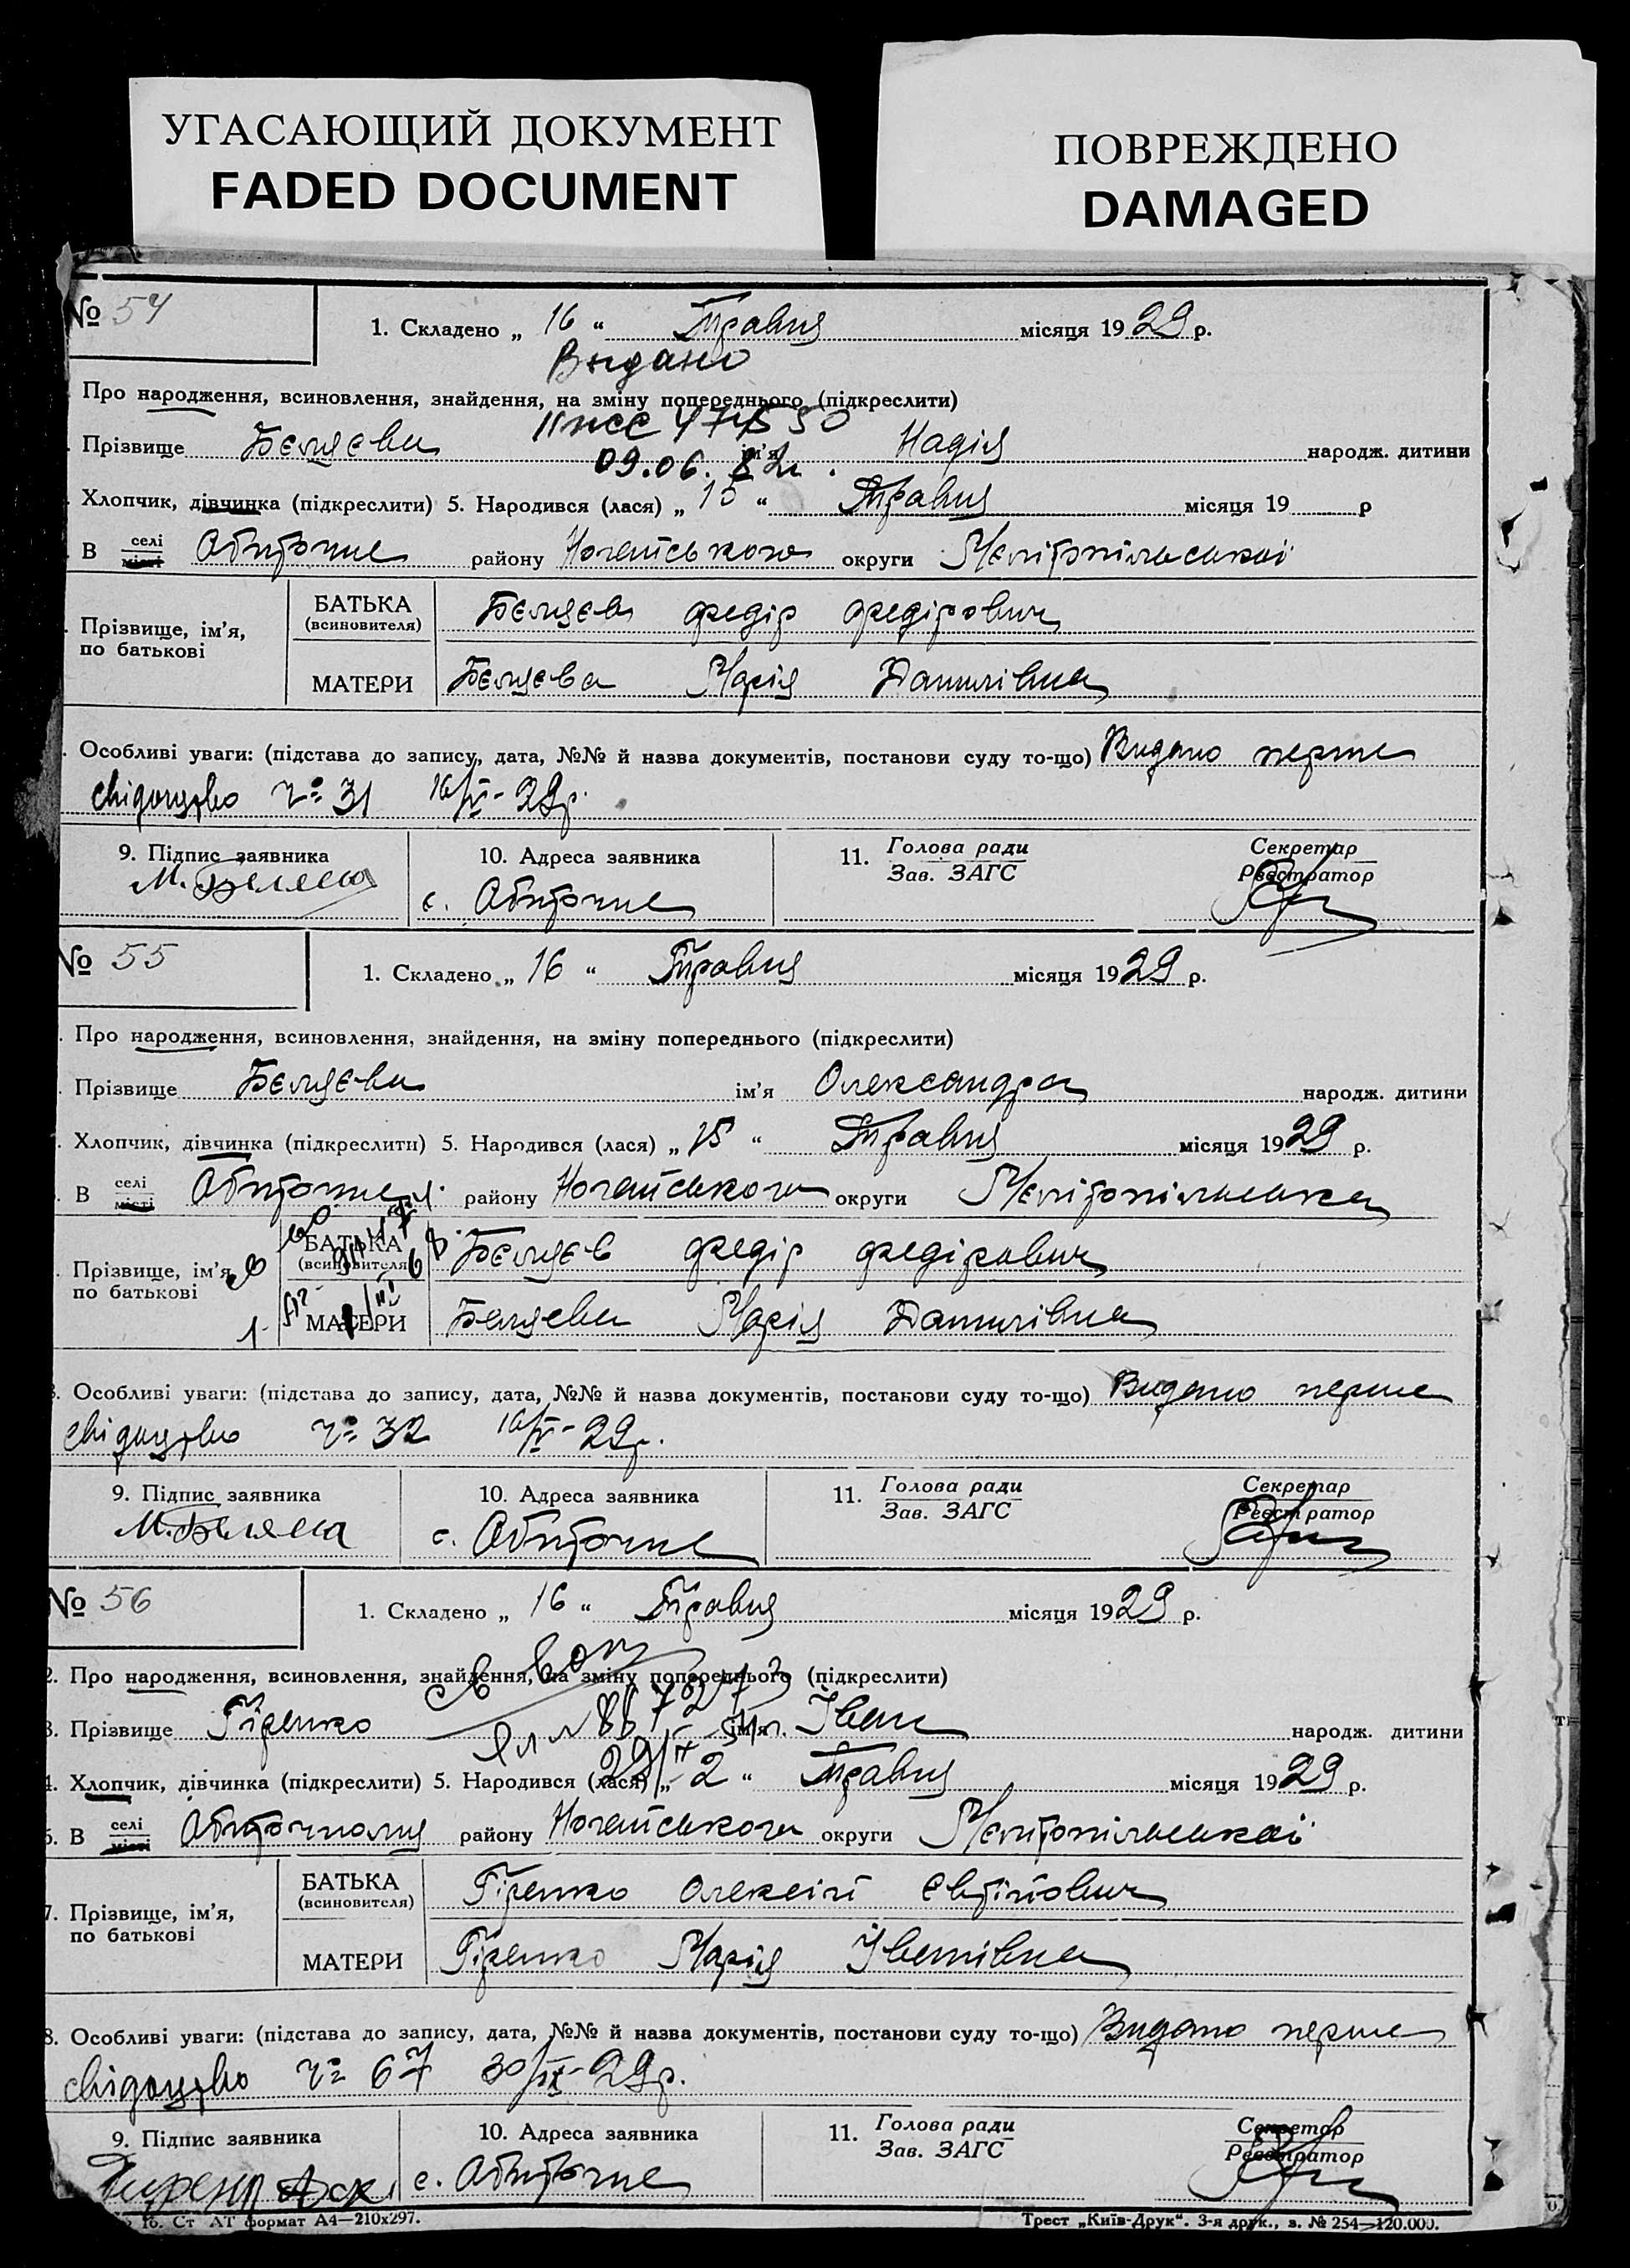 УГАСАЮЩИЙ ДОКУМЕНТ
FADED DOCUMENT
ПОВРЕЖДЕНО
DAMAGED
№ 54
1. Складено „ 16 “ Травня місяця 1929 р.
Видано
Про народження, всиновлення, знайдення, на зміну попереднього (підкреслити)
Прізвище Бєляєва ім'я Надія народж. дитини
09.06.
Хлопчик, дівчинка (підкреслити) 5. Народився (лася) „ 15 “ Травня місяця 19 р
В селі місті Обиточне району Ногайського округи Мелітопільської
Прізвище, ім'я, по батькові
БАТЬКА (всиновителя) Бєляєв Федір Федірович
МАТЕРИ Бєляєва Марія Данилівна
Особливі уваги: (підстава до запису, дата, №№ й назва документів, постанови суду то-що) Видано перше
свідоцтво ч= 31 16/V-29р.
9. Підпис заявника
10. Адреса заявника
11. Голова ради Зав. ЗАГС
Секретар Реєстратор
М. Беляева
с. Обиточне
№ 55
1. Складено „ 16 “ Травня місяця 1929 р.
Про народження, всиновлення, знайдення, на зміну попереднього (підкреслити)
Прізвище Бєляєва ім'я Олександра народж. дитини
Хлопчик, дівчинка (підкреслити) 5. Народився (лася) „ 15 “ Травня місяця 1929 р.
В селі місті Обиточне району Ногайського округи Мелітопільська
Прізвище, ім'я, по батькові
БАТЬКА (всиновителя) Бєляєв Федір Федірович
МАТЕРИ Беляева Марія Данилівна
. Особливі уваги: (підстава до запису, дата, №№ й назва документів, постанови суду то-що) Видано перше
свідоцтво ч= 32 16/V-29р.
9. Підпис заявника
10. Адреса заявника
11. Голова ради Зав. ЗАГС
Секретар Реєстратор
М. Беляева
с. Обиточне
№ 56
1. Складено „ 16 “ Травня місяця 1929 р.
2. Про народження, всиновлення, знайдення, на зміну попереднього (підкреслити)
3. Прізвище Гіренко ім'я Іван народж. дитини
4. Хлопчик, дівчинка (підкреслити) 5. Народився (лася) „ 2 “ Травня місяця 1929 р.
6. В селі місті району Ногайського округи Мелітопільської
7. Прізвище, ім'я, по батькові
БАТЬКА (всиновителя) Гіренко Олексій
МАТЕРИ Гіренко Марія Іванівна
8. Особливі уваги: (підстава до запису, дата, №№ й назва документів, постанови суду то-що) Видано перше
свідоцтво ч= 67 30/IX-29р.
9. Підпис заявника
10. Адреса заявника
11. Голова ради Зав. ЗАГС
Секретар Реєстратор
с. Обиточне
16. Ст АТ формат А4—210x297.
Трест „Київ-Друк“. 3-я друк., з. № 254—120.000.